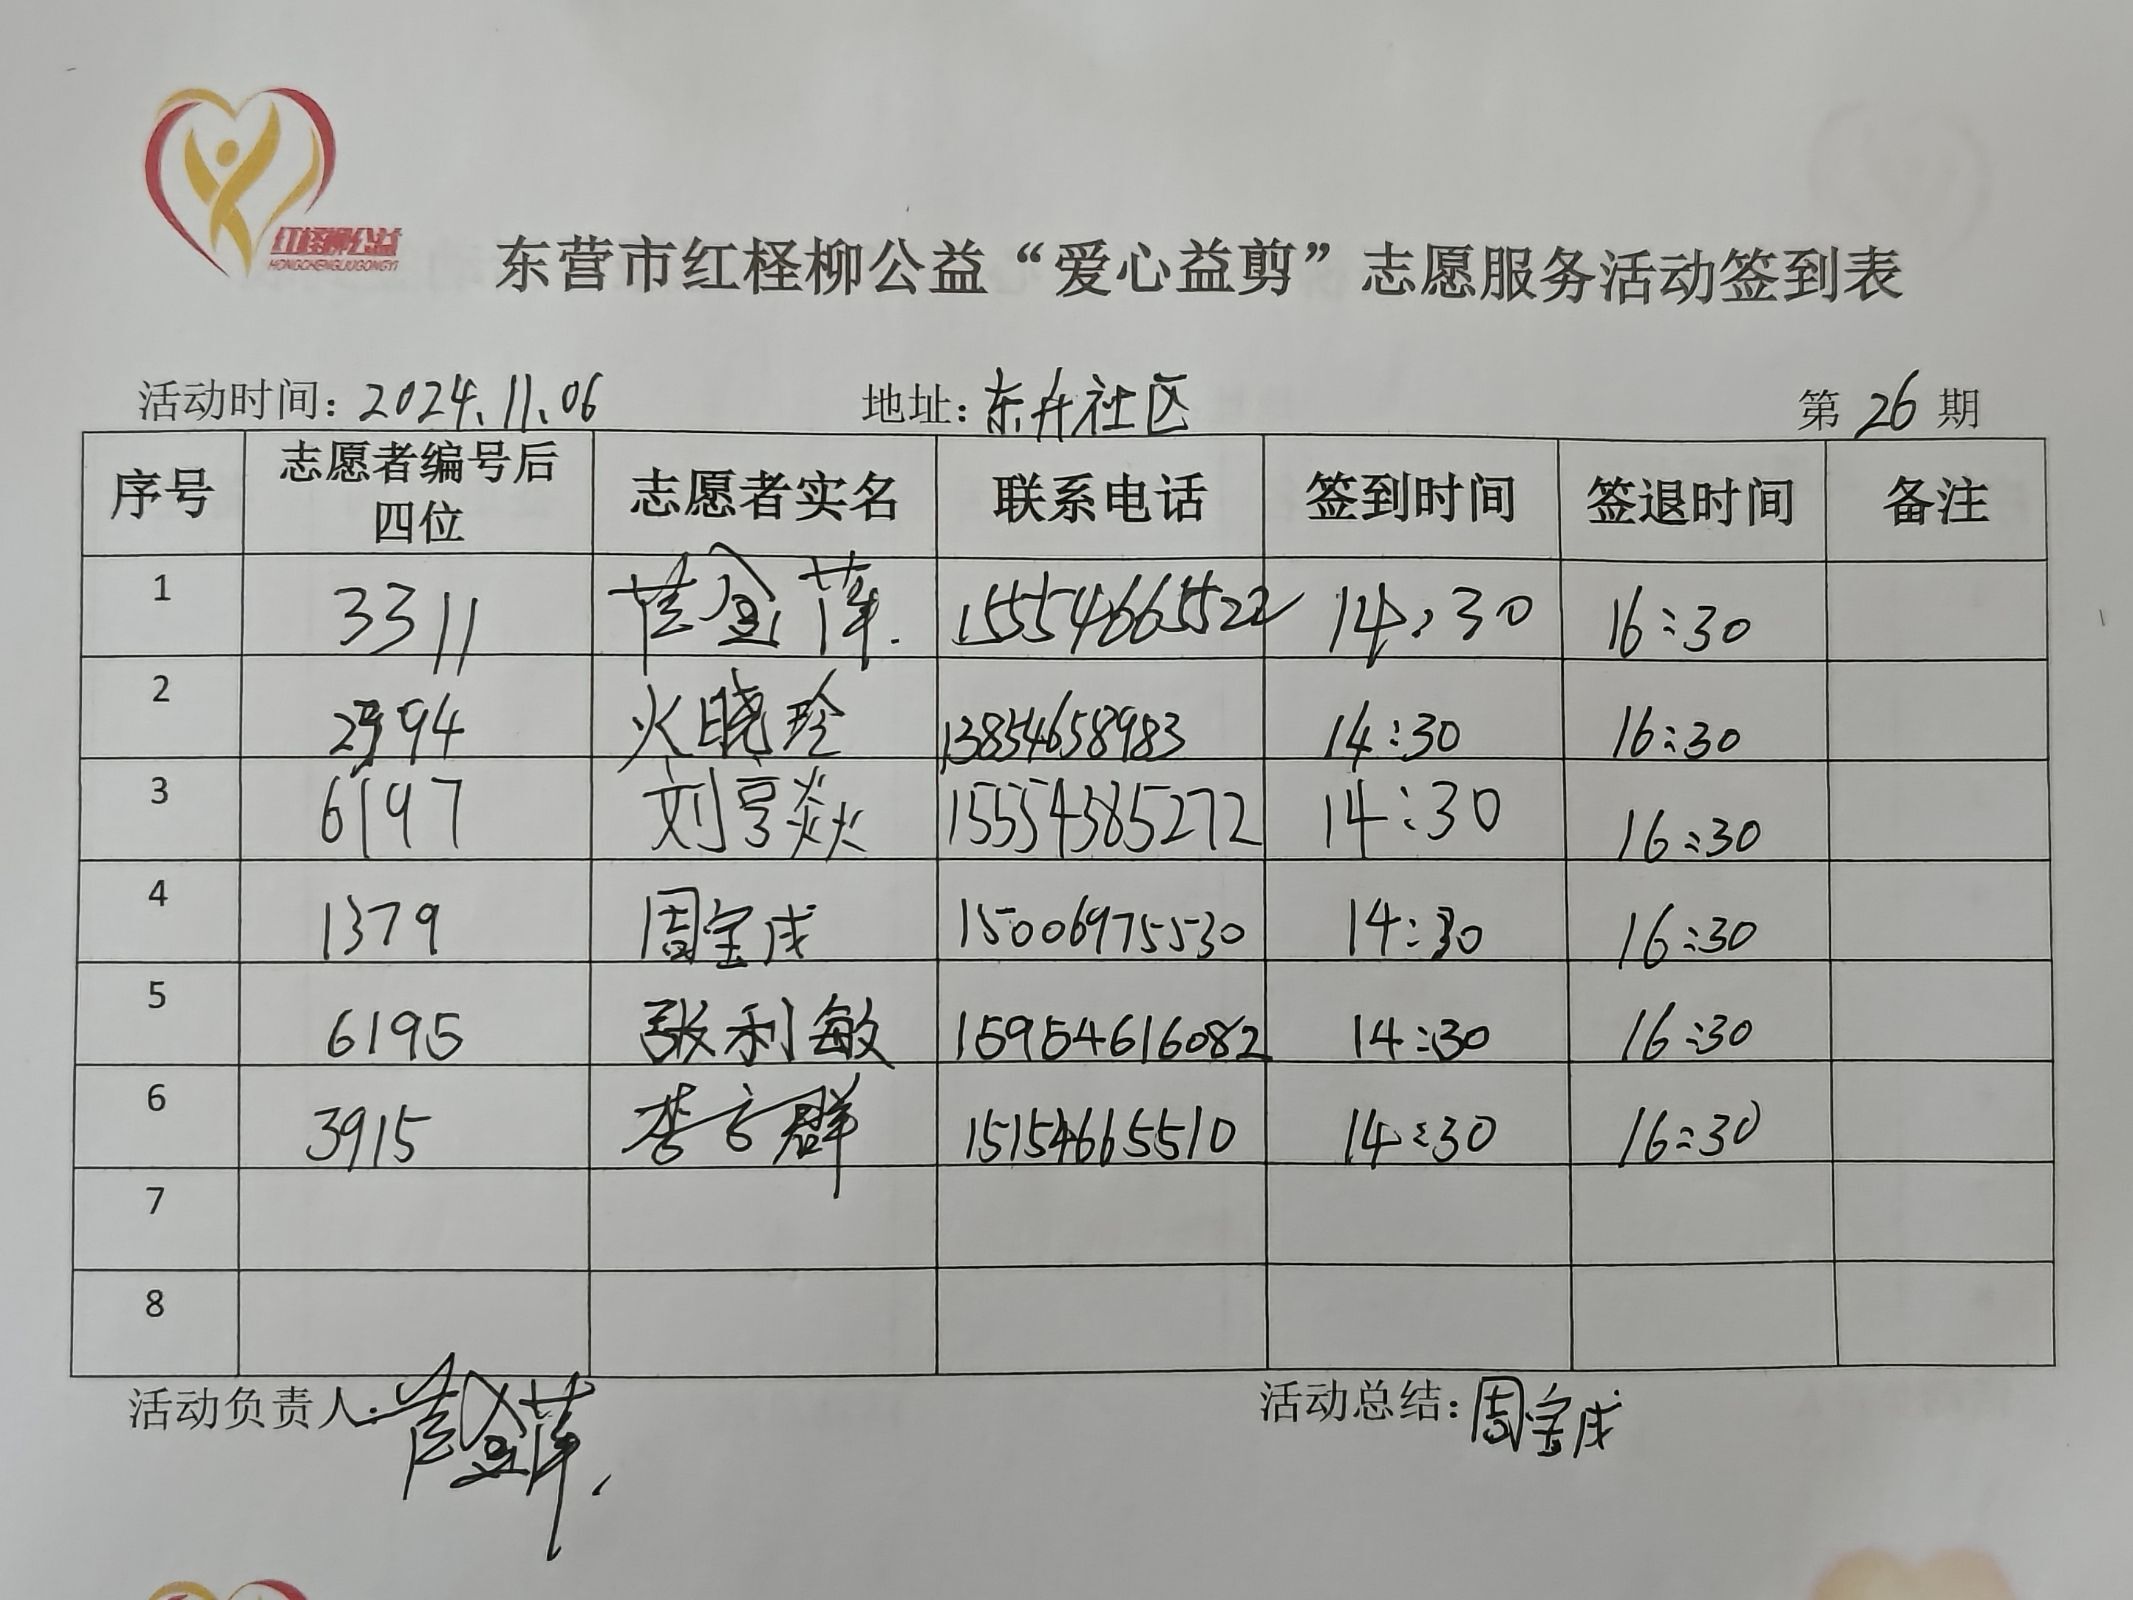 红柽柳公益
HONGCHENGLIUGONGYI
东营市红柽柳公益“爱心益剪”志愿服务活动签到表
活动时间：2024.11.06 地址：东井社区 第 26 期
序号 志愿者编号后四位 志愿者实名 联系电话 签到时间 签退时间 备注
1 3311 金萍 15554665522 14:30 16:30
2 94 火晓玲 13854658983 14:30 16:30
3 6197 刘亨焱 15554385272 14:30 16:30
4 1379 周宝成 15006975530 14:30 16:30
5 6195 张利敏 15954616082 14:30 16:30
6 3915 李方群 15154665510 14:30 16:30
7
8
活动负责人： 金萍 活动总结：周宝成